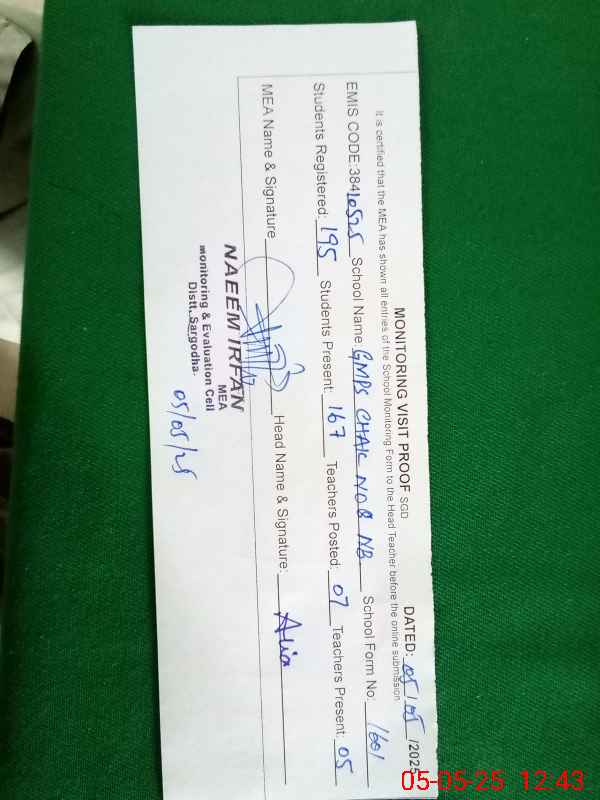 MONITORING VISIT PROOF SGD
DATED: 05/05/2025
It is certified that the MEA has shown all entries of the School Monitoring Form to the Head Teacher before the online submission
EMIS CODE:38410525 School Name: GMPS CHAK NO 8 NB School Form No: 1601
Students Registered: 195 Students Present: 167 Teachers Posted: 07 Teachers Present: 05
MEA Name & Signature Head Name & Signature: Alia
NAEEM IRFAN
MEA
monitoring & Evaluation Cell
Distt. Sargodha.
05/05/25
05-05-25 12:43